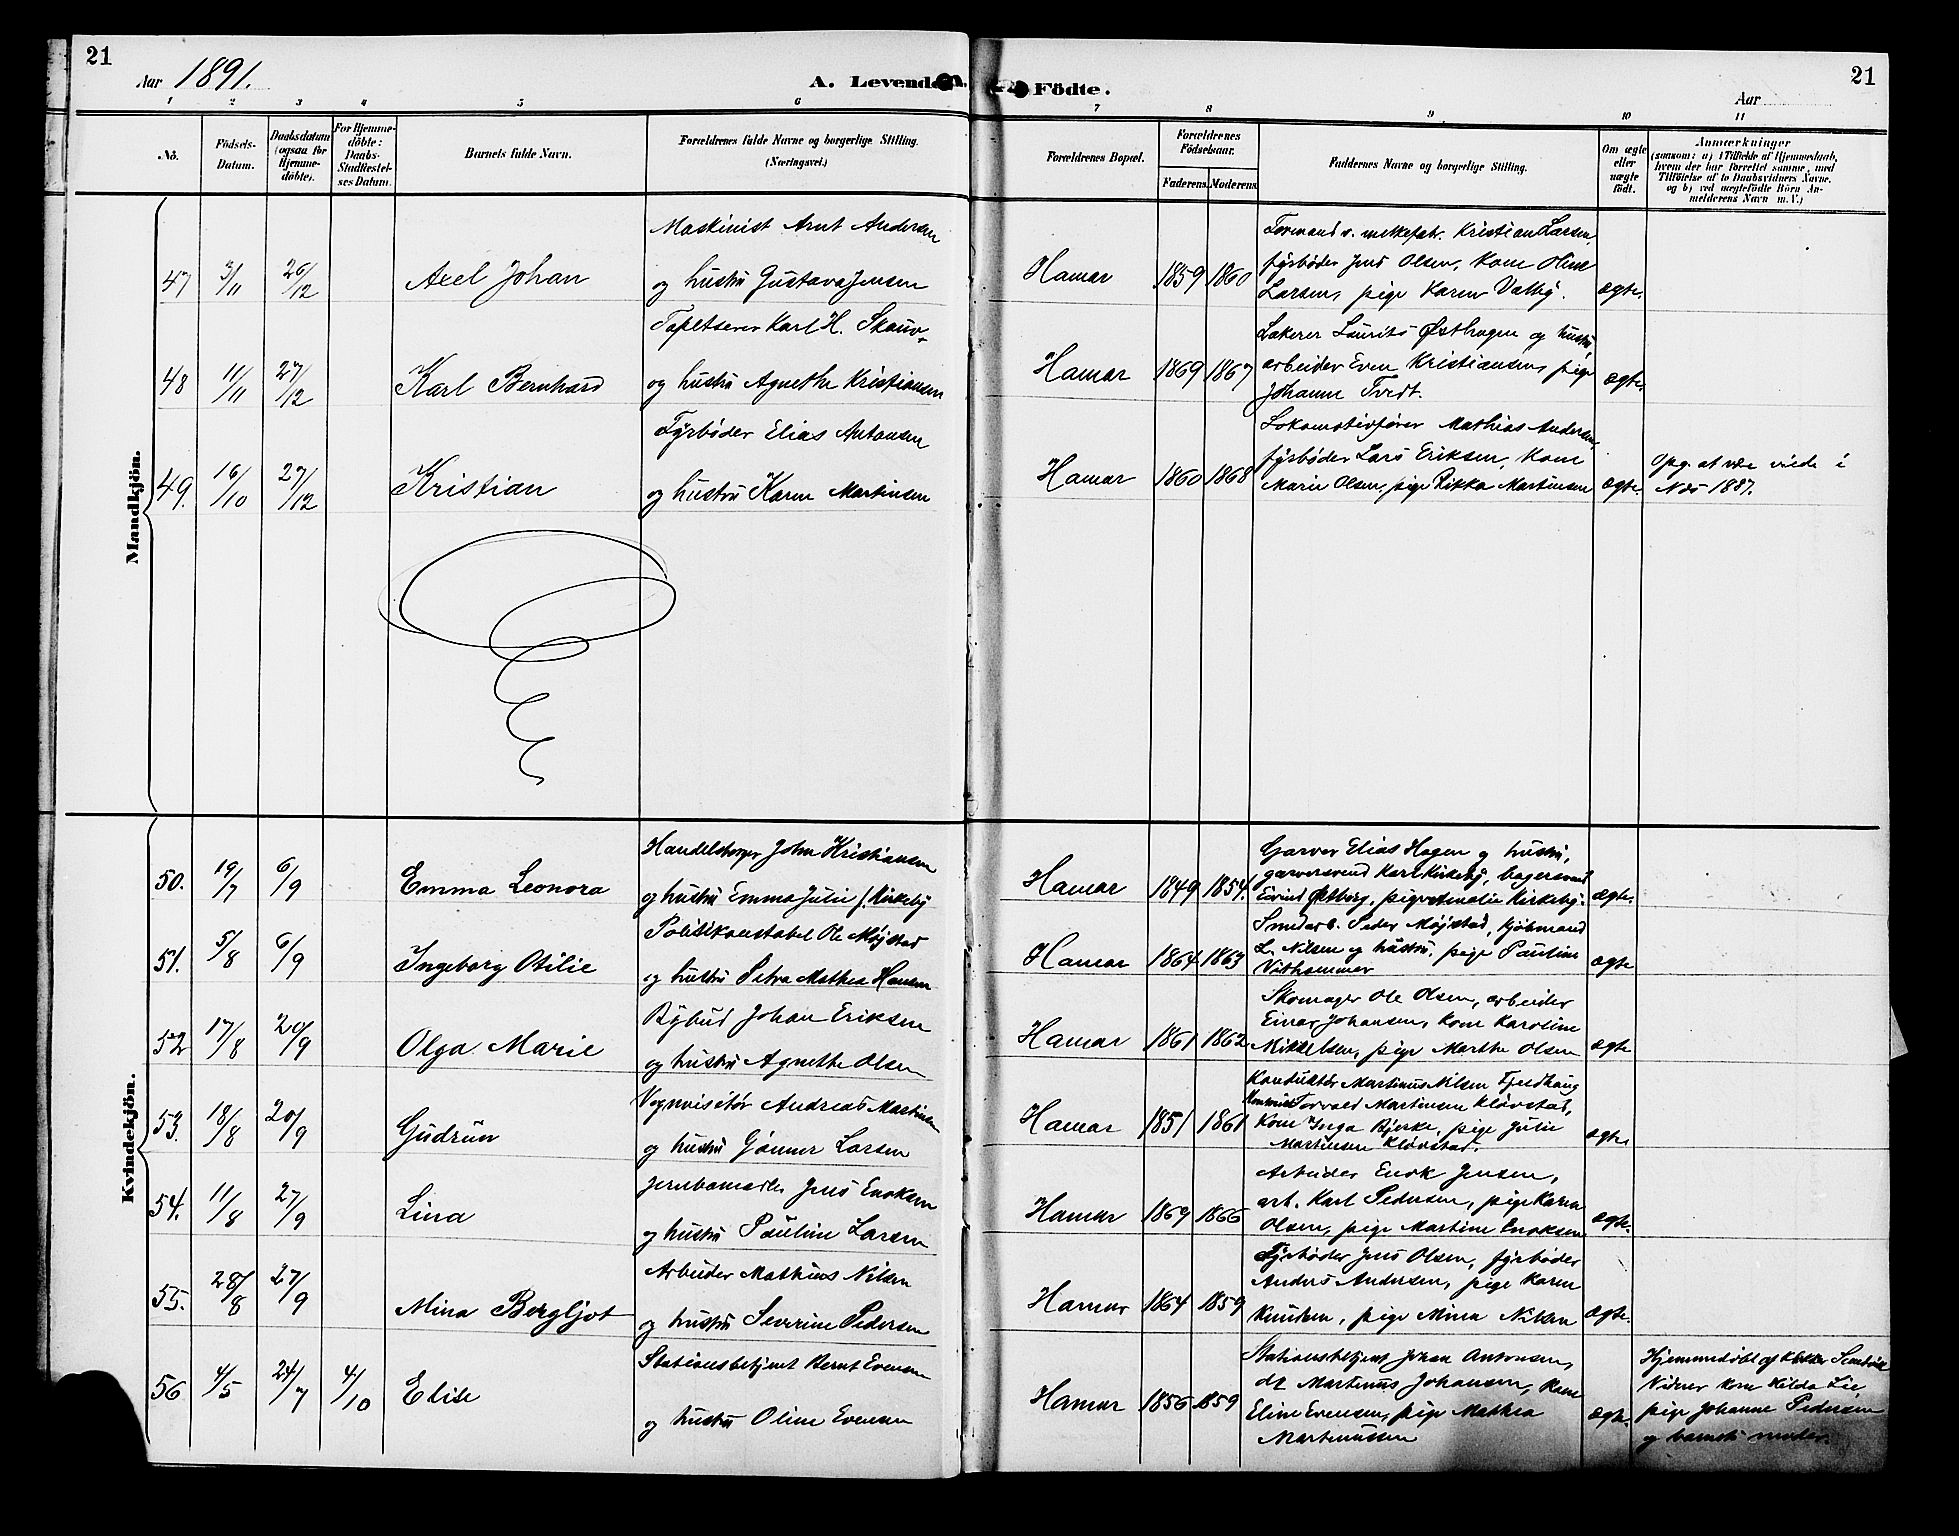 21
Aar 1891.
A. Levende
Födte.
Aar
21
1 2 3 4 5 6 7 8 9 10 11
No.
Födsels-Datum.
Daabsdatum (ogsaa for Hjemme-döbte).
For Hjemme-döbte: Daabs-Stadfæstel-ses Datum.
Barnets fulde Navn.
Forældrenes fulde Navne og borgerlige Stilling.
(Næringsvei.)
Forældrenes Bopæl.
Forældrenes Födselsaar.
Faderens. Moderens.
Faddernes Navne og borgerlige Stilling.
Om ægte eller uægte födt.
Anmærkninger
(saasom: a) i Tilfælde af Hjemmedaab,
hvem der har forrettet samme, med
Tilföielse af to Daabsvidners Navne,
og b) ved uægtefödte Börn An-
melderens Navn m. V.)
Mandkjön.
47 3/11 26/12 Axel Johan
Maskinist Arnt Andersen
og hustru Gustava Jensen
Hamar 1859 1860
Formand v. melkefab. Kristian Larsen,
fyrbøder Jens Olsen, Kone
Larsen, pige Karen Valby.
ægte.
48 11/11 27/12 Karl Bernhard
Tapetserer Karl H. Skauv
og hustru Agnethe Kristiansen
Hamar 1869 1867
Lakerer Laurits Østhagen og hustru,
arbeider Even Kristiansen, pige
Johanne Tvedt.
ægte.
49. 16/10 27/12 Kristian
Fyrbøder Elias Antonsen
og hustru Karen Martinsen
Hamar 1860 1868
Lokomotivfører Mathias Andersen,
fyrbøder Lars Eriksen, Kone
Marie Olsen, pige Rikka Martinsen
ægte.
Opg. at være viede i
Næs 1887.
Kvindekjön.
50. 19/7 6/9 Emma Leonora
Handelsborger John Kristiansen
og hustru Emma Julie f. Kirkeby
Hamar 1849 1854.
Garver Elias Hagen og hustru,
garversvend Karl Kirkeby, bagersvend
Eivind Østberg, pige Amalie Kirkeby.
ægte.
51. 5/8 6/9 Ingeborg Otilie
Politikonstabel Ole Møjstad
og hustru Petra Mathea Hansen
Hamar 1864 1863
Smedarb. Peder Møjstad, kjøbmand
L. Nilsen og hustru, pige Pauline
Vithammer
ægte
52 17/8 20/9 Olga Marie
Bybud Johan Eriksen
og hustru Agnethe Olsen
Hamar 1861 1862
Skomager Ole Olsen, arbeider
Einar Johansen, Kone Karoline
Mikkelsen, pige Marthe Olsen
ægte
53. 18/8 20/9 Gudrun
Vognvisitør Andreas Martinsen
og hustru Gunner Larsen
Hamar 1851 1861
Konduktør Martinus Nilsen Fjeldhaug
Torvald Martinsen Kløvstad,
Kone Inga Bjerke, pige Julie
Martinsen Kløvstad.
ægte
54. 11/8 27/9 Lina
Jernbanearb. Jens Enoksen
og hustru Pauline Larsen
Hamar 1869 1866
Arbeider Enok Jensen,
arb. Karl Pedersen, pige Karen
Olsen, pige Martine Enoksen
ægte.
55. 28/8 27/9 Mina Bergljot
Arbeider Mathius Nilsen
og hustru Severine Pedersen
Hamar 1864 1859
Fyrbøder Jens Olsen, fyrbøder
Anders Andersen, pige Karen
Knudsen, pige Mina Nilsen
ægte.
56 4/5 24/7 4/10 Elise
Stationsbetjent Bernt Evensen
og hustru Oline Evensen
Hamar 1856 1859
Stationsbetjent Johan Antonsen,
do Martinus Johansen, Kone
Eline Evensen, pige Mathea
Martinussen
ægte.
Hjemmedøbt af
Vidner Kone Hilda Lie,
pige Johanne Pedersen
og barnets moder.